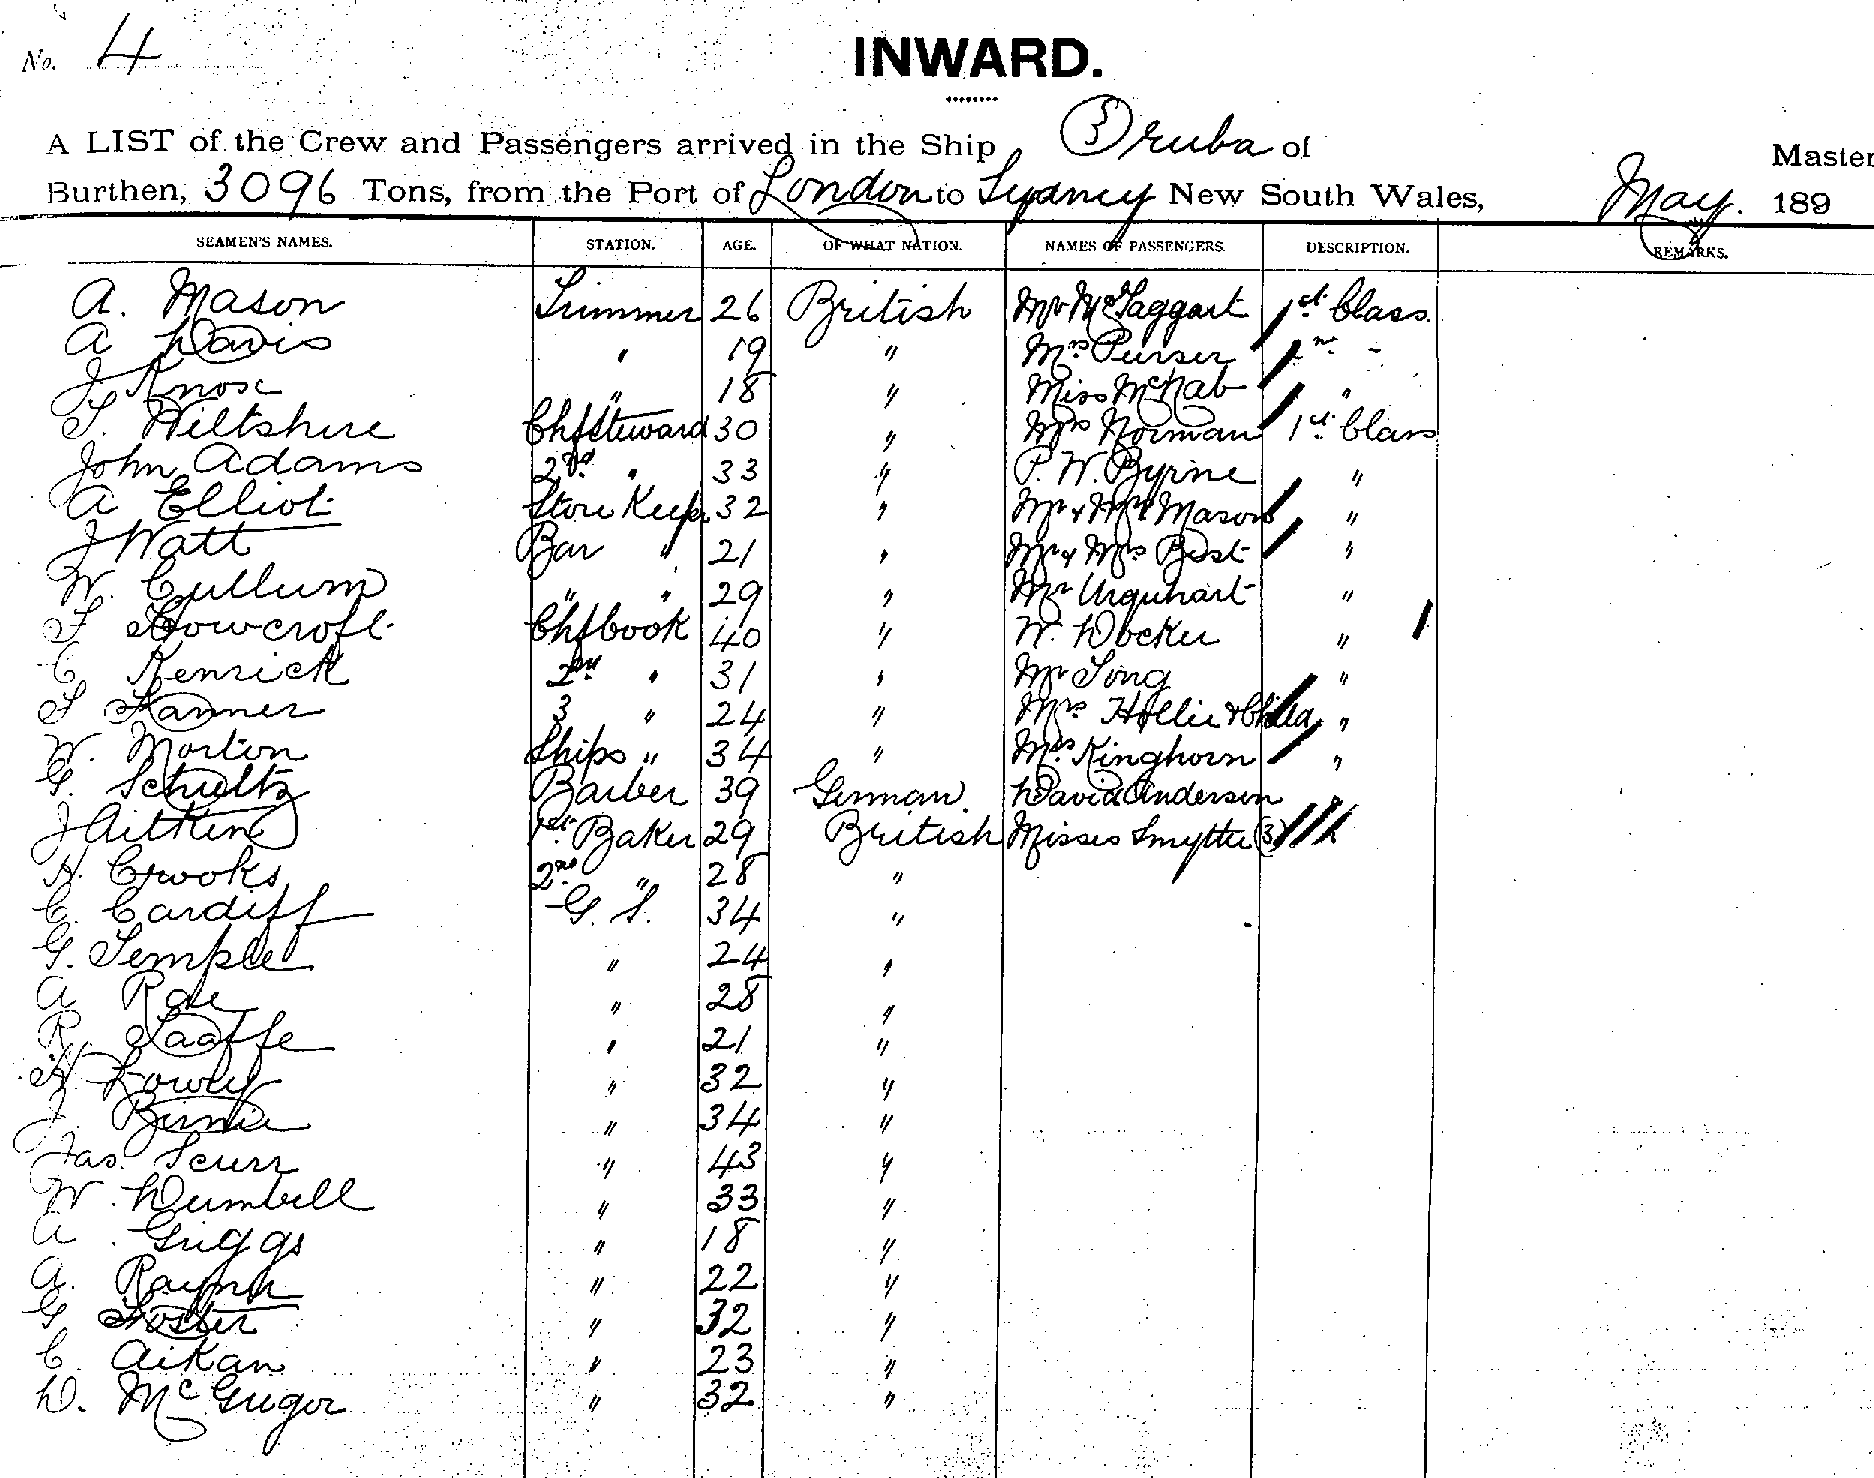 No. 4
INWARD.
A LIST of the Crew and Passengers arrived in the Ship Oruba of Master
Burthen, 3096 Tons, from the Port of London to Sydney New South Wales, May. 189
SEAMEN'S NAMES. STATION. AGE. OF WHAT NATION. NAMES OF PASSENGERS. DESCRIPTION. REMARKS.
A. Mason Trimmer 26 British Mr McTaggart 1st Class
A Davis " 19 " Mrs Purser 2nd "
J Knox " 18 " Miss McNab "
T. Wiltshire Chf Steward 30 " Mrs Norman 1st Class
John Adams 2nd " 33 " P. W. Byrne "
A Elliot Store Keepr 32 " Mr & Mrs Mason "
J Watt Bar " 21 " Mr & Mrs Best "
W. Cullum " " 29 " Mr Urquhart "
T Howcroft Chf Cook 40 " W. Docker "
C Kenrick 2nd " 31 " Mr Song "
T Hanner 3 " 24 " Mrs Hollie & Child "
W. Morton Ships " 34 " Mrs Kinghorn "
G. Schultz Barber 39 German. David Anderson "
J Aitken 1st Baker 29 British Misses Smythe (3)
H. Crooks 2nd " 28 "
C. Cardiff G. S. 34 "
G. Temple " 24 "
A Rae " 28 "
R. " 21 "
H Lowey " 32 "
J. Birnie " 34 "
Jas. Scurr " 43 "
W. Dumbell " 33 "
A Griggs " 18 "
A. " 22 "
G Foster " 32 "
C. Aikan " 23 "
D. McGregor " 32 "